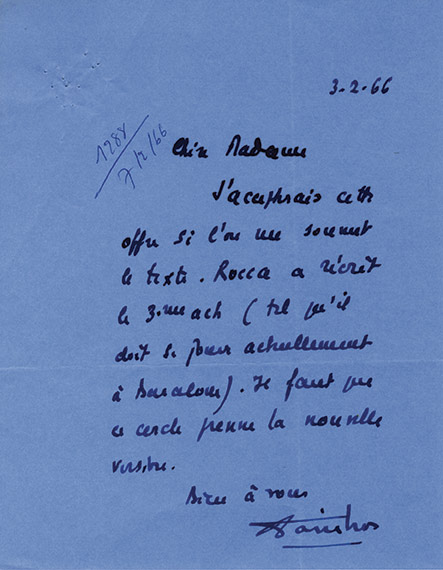 3-2-66
1288
7/2/66
Chère Madame
J'accepterais cette
offre si l'on me soumet
le texte. Rocca a récrit
le 3.me ach (tel qu'il
doit se jouer actuellement
à Barcelone). Il faut que
ce cercle prenne la nouvelle
version.
Bien à vous